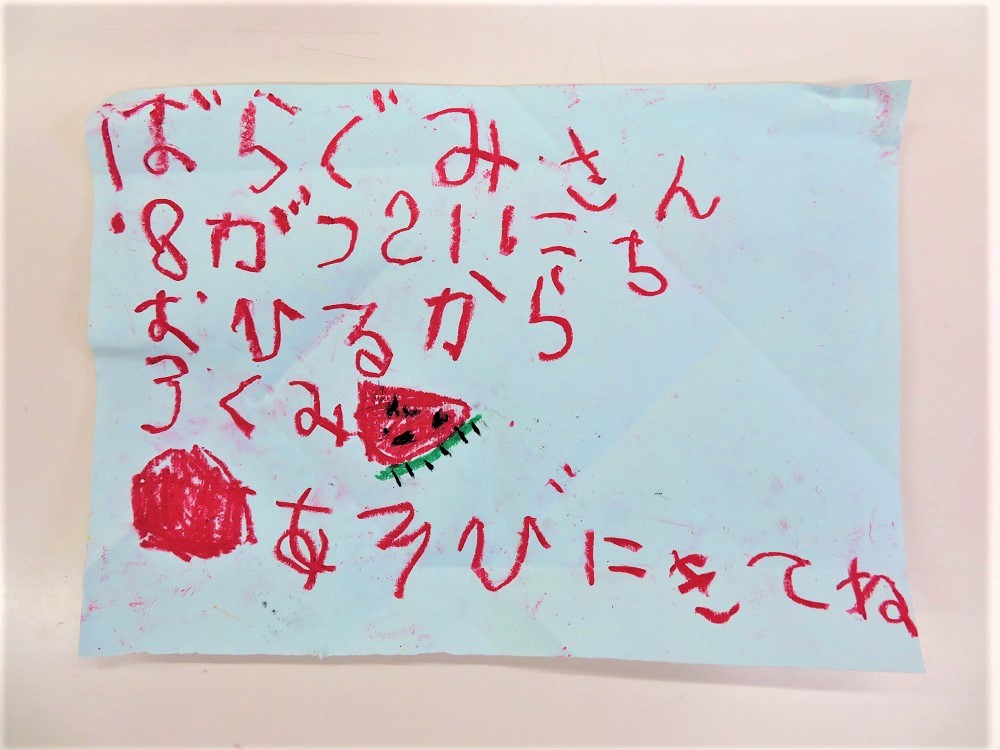 ばらぐみさん
8がつ21にち
おひるから
ろくみ
あそびにきてね